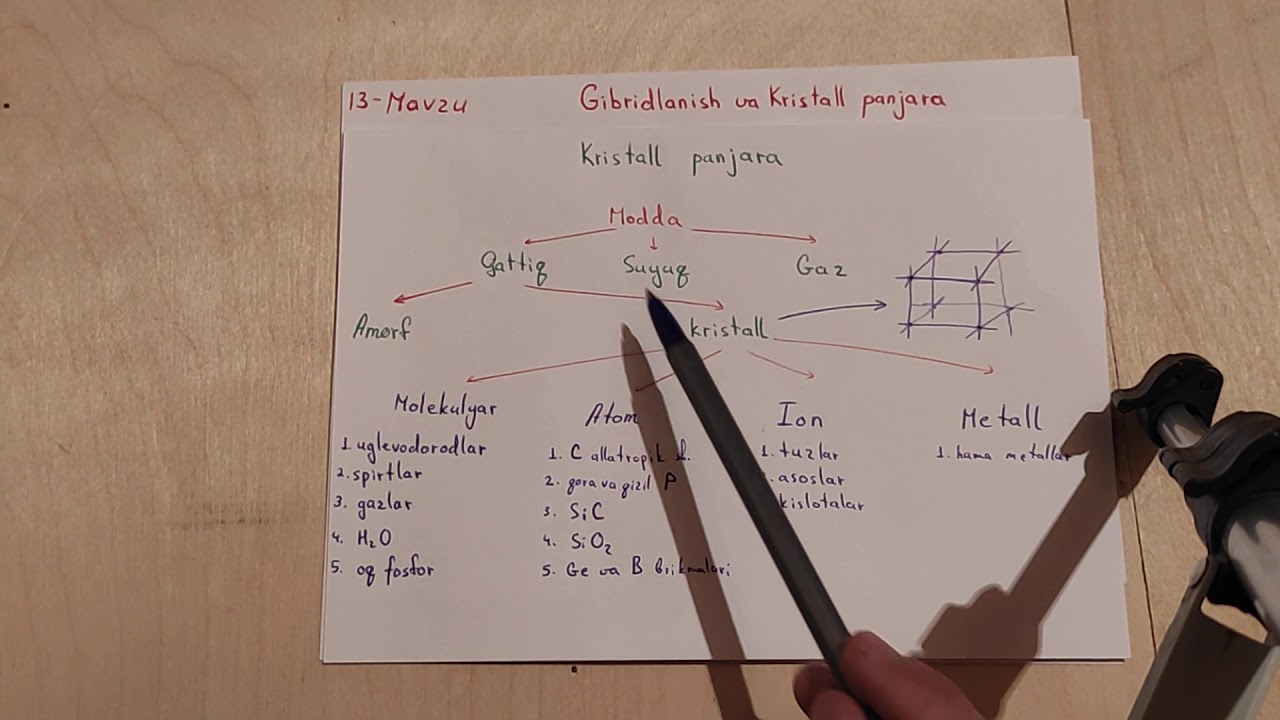 13-Mavzu Gibridlanish va Kristall panjara
Kristall panjara
Modda
Qattiq Suyuq Gaz
Amorf kristall
Molekulyar Atom Ion Metall
1. uglevodorodlar
2. spirtlar
3. gazlar
4. H₂O
5. oq fosfor
1. C allatropik
2. qora va qizil P
3. SiC
4. SiO₂
5. Ge va B brikmalari
1. tuzlar
. asoslar
kislotalar
1. hama metallar